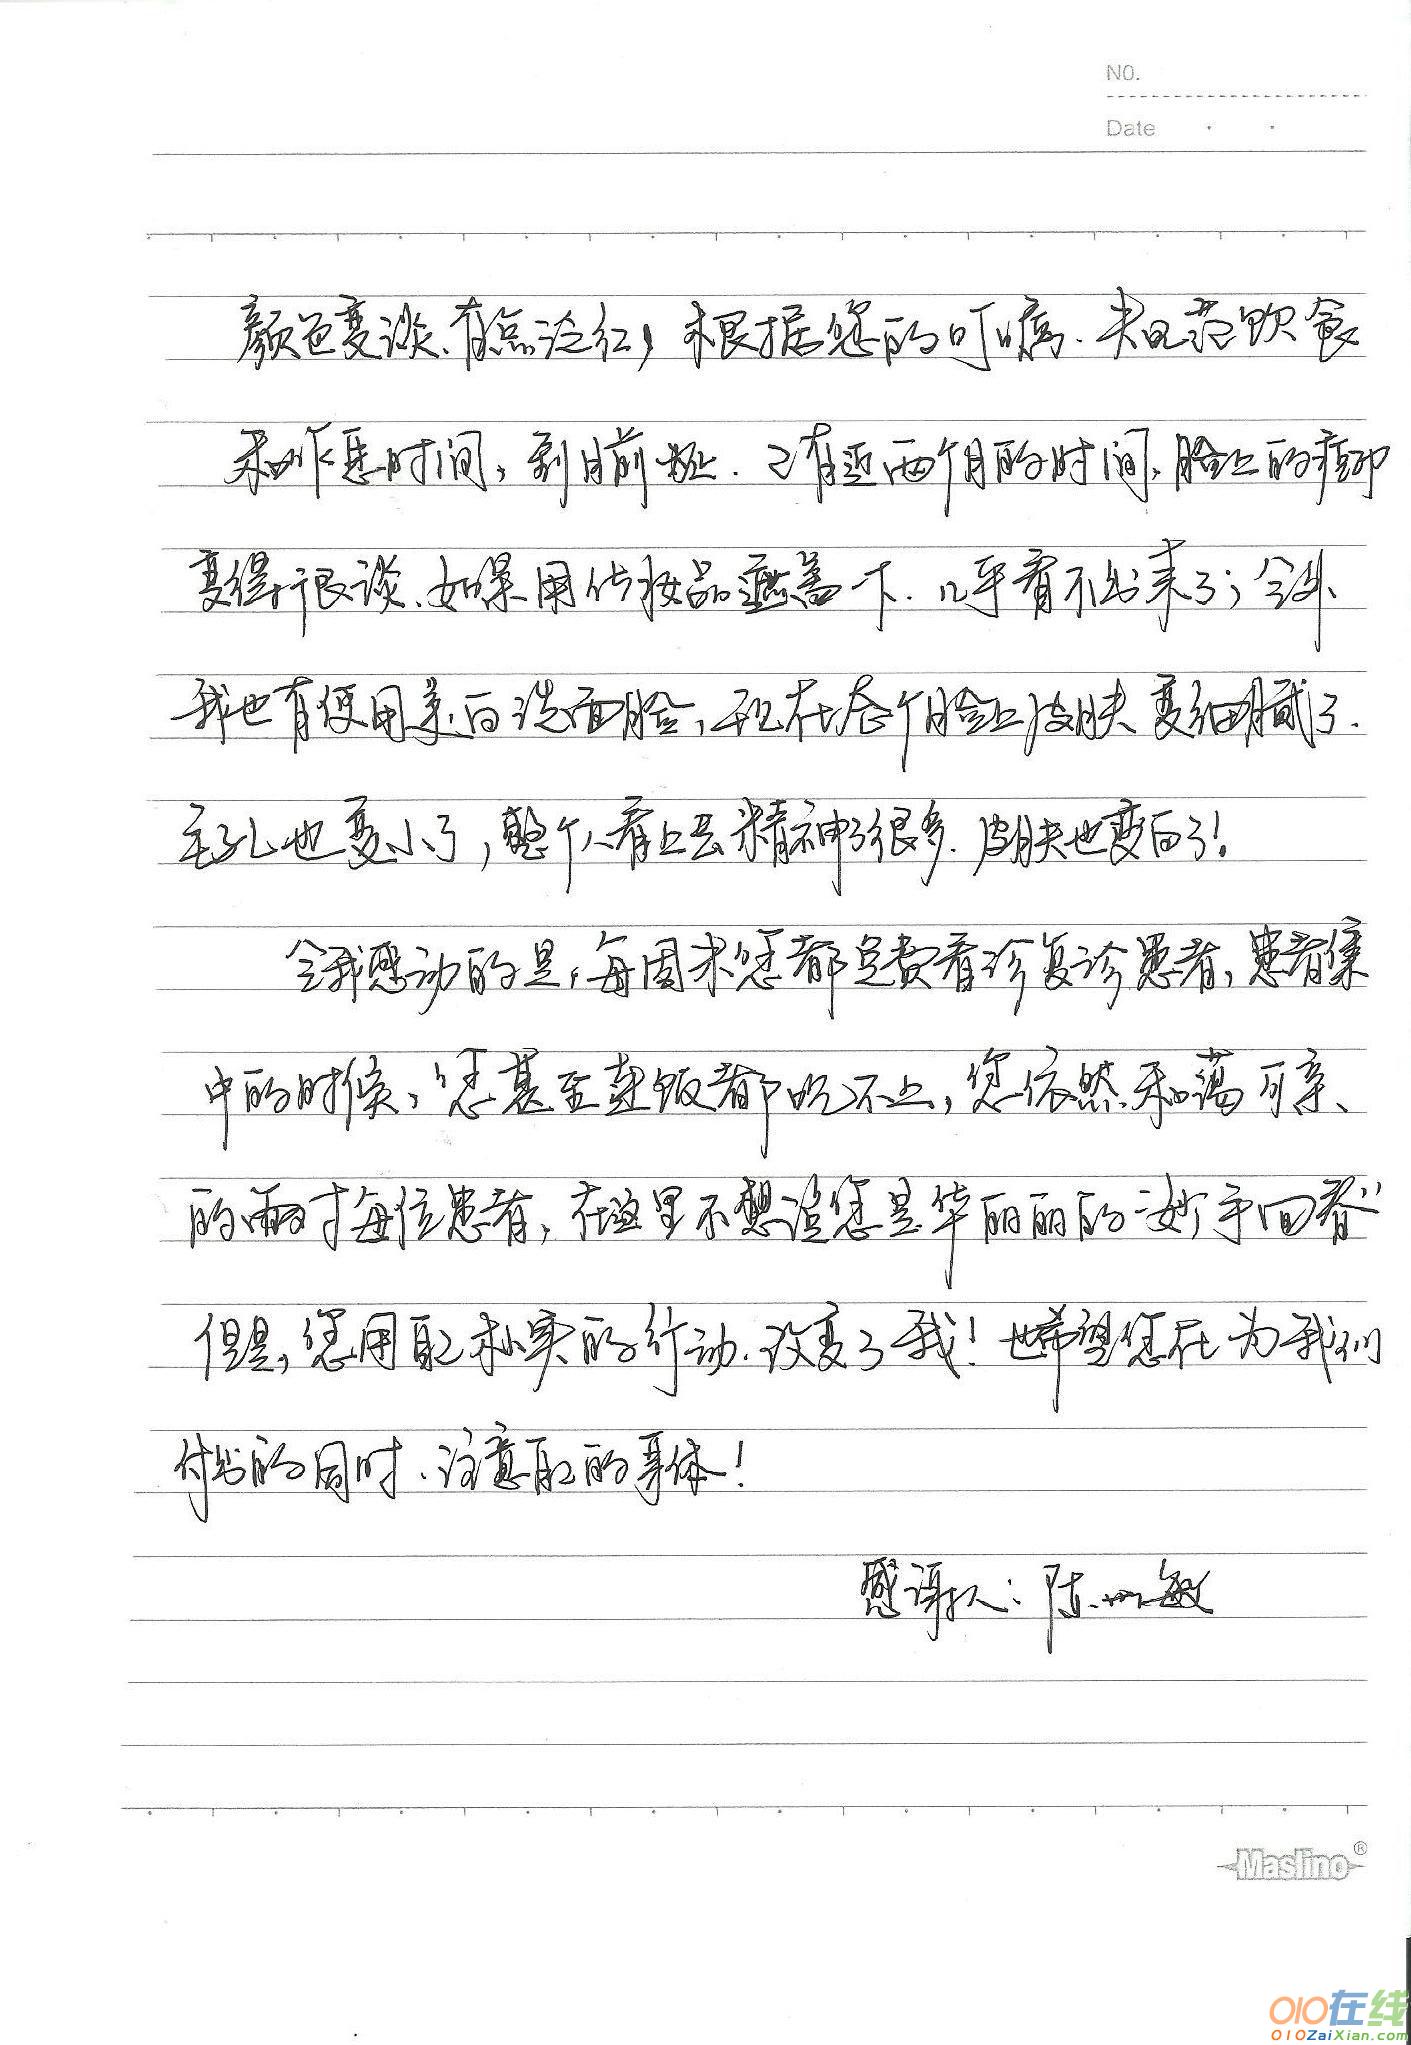 NO.
Date
颜色变淡、有点泛红，根据您的叮嘱、规范饮食
和作息时间，到目前为止、已有近两个月的时间，脸上的痘印
变得很淡、如果用化妆品遮盖一下、几乎看不出来了；另外
我也有使用美白洗面脸，现在整个脸上皮肤变细腻了、
毛孔也变小了，整个人看上去精神了很多、皮肤也变白了！
令我感动的是，每周末您都免费看诊复诊患者，患者集
中的时候，您甚至连饭都吃不上，您依然和蔼可亲、
的面对每位患者，在这里不想说您是华丽丽的"妙手回春"
但是，您用自己朴实的行动、改变了我！也希望您在为我们
付出的同时、注意自己的身体！
感谢人：陈 敏
Maslino®
010在线
010ZaiXian.com